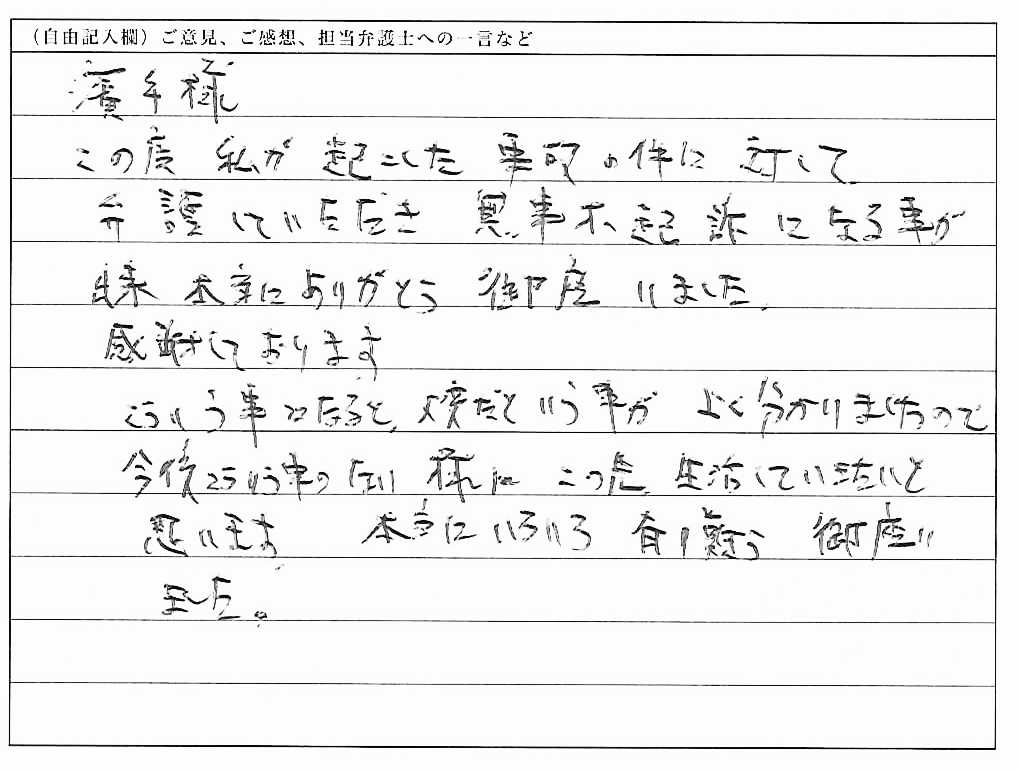 (自由記入欄)ご意見、ご感想、担当弁護士への一言など
濱手様
この度 私が 起こした 事故の件に 対して
弁護していただき 無事不起訴になる事が
出来 本当にありがとう御座いました。
感謝しております
こういう事になると、大変だという事が よく分かりましたので
今後こういう事のない様に この先 生活していきたいと
思います 本当にいろいろ 有り難う 御座い
ました。